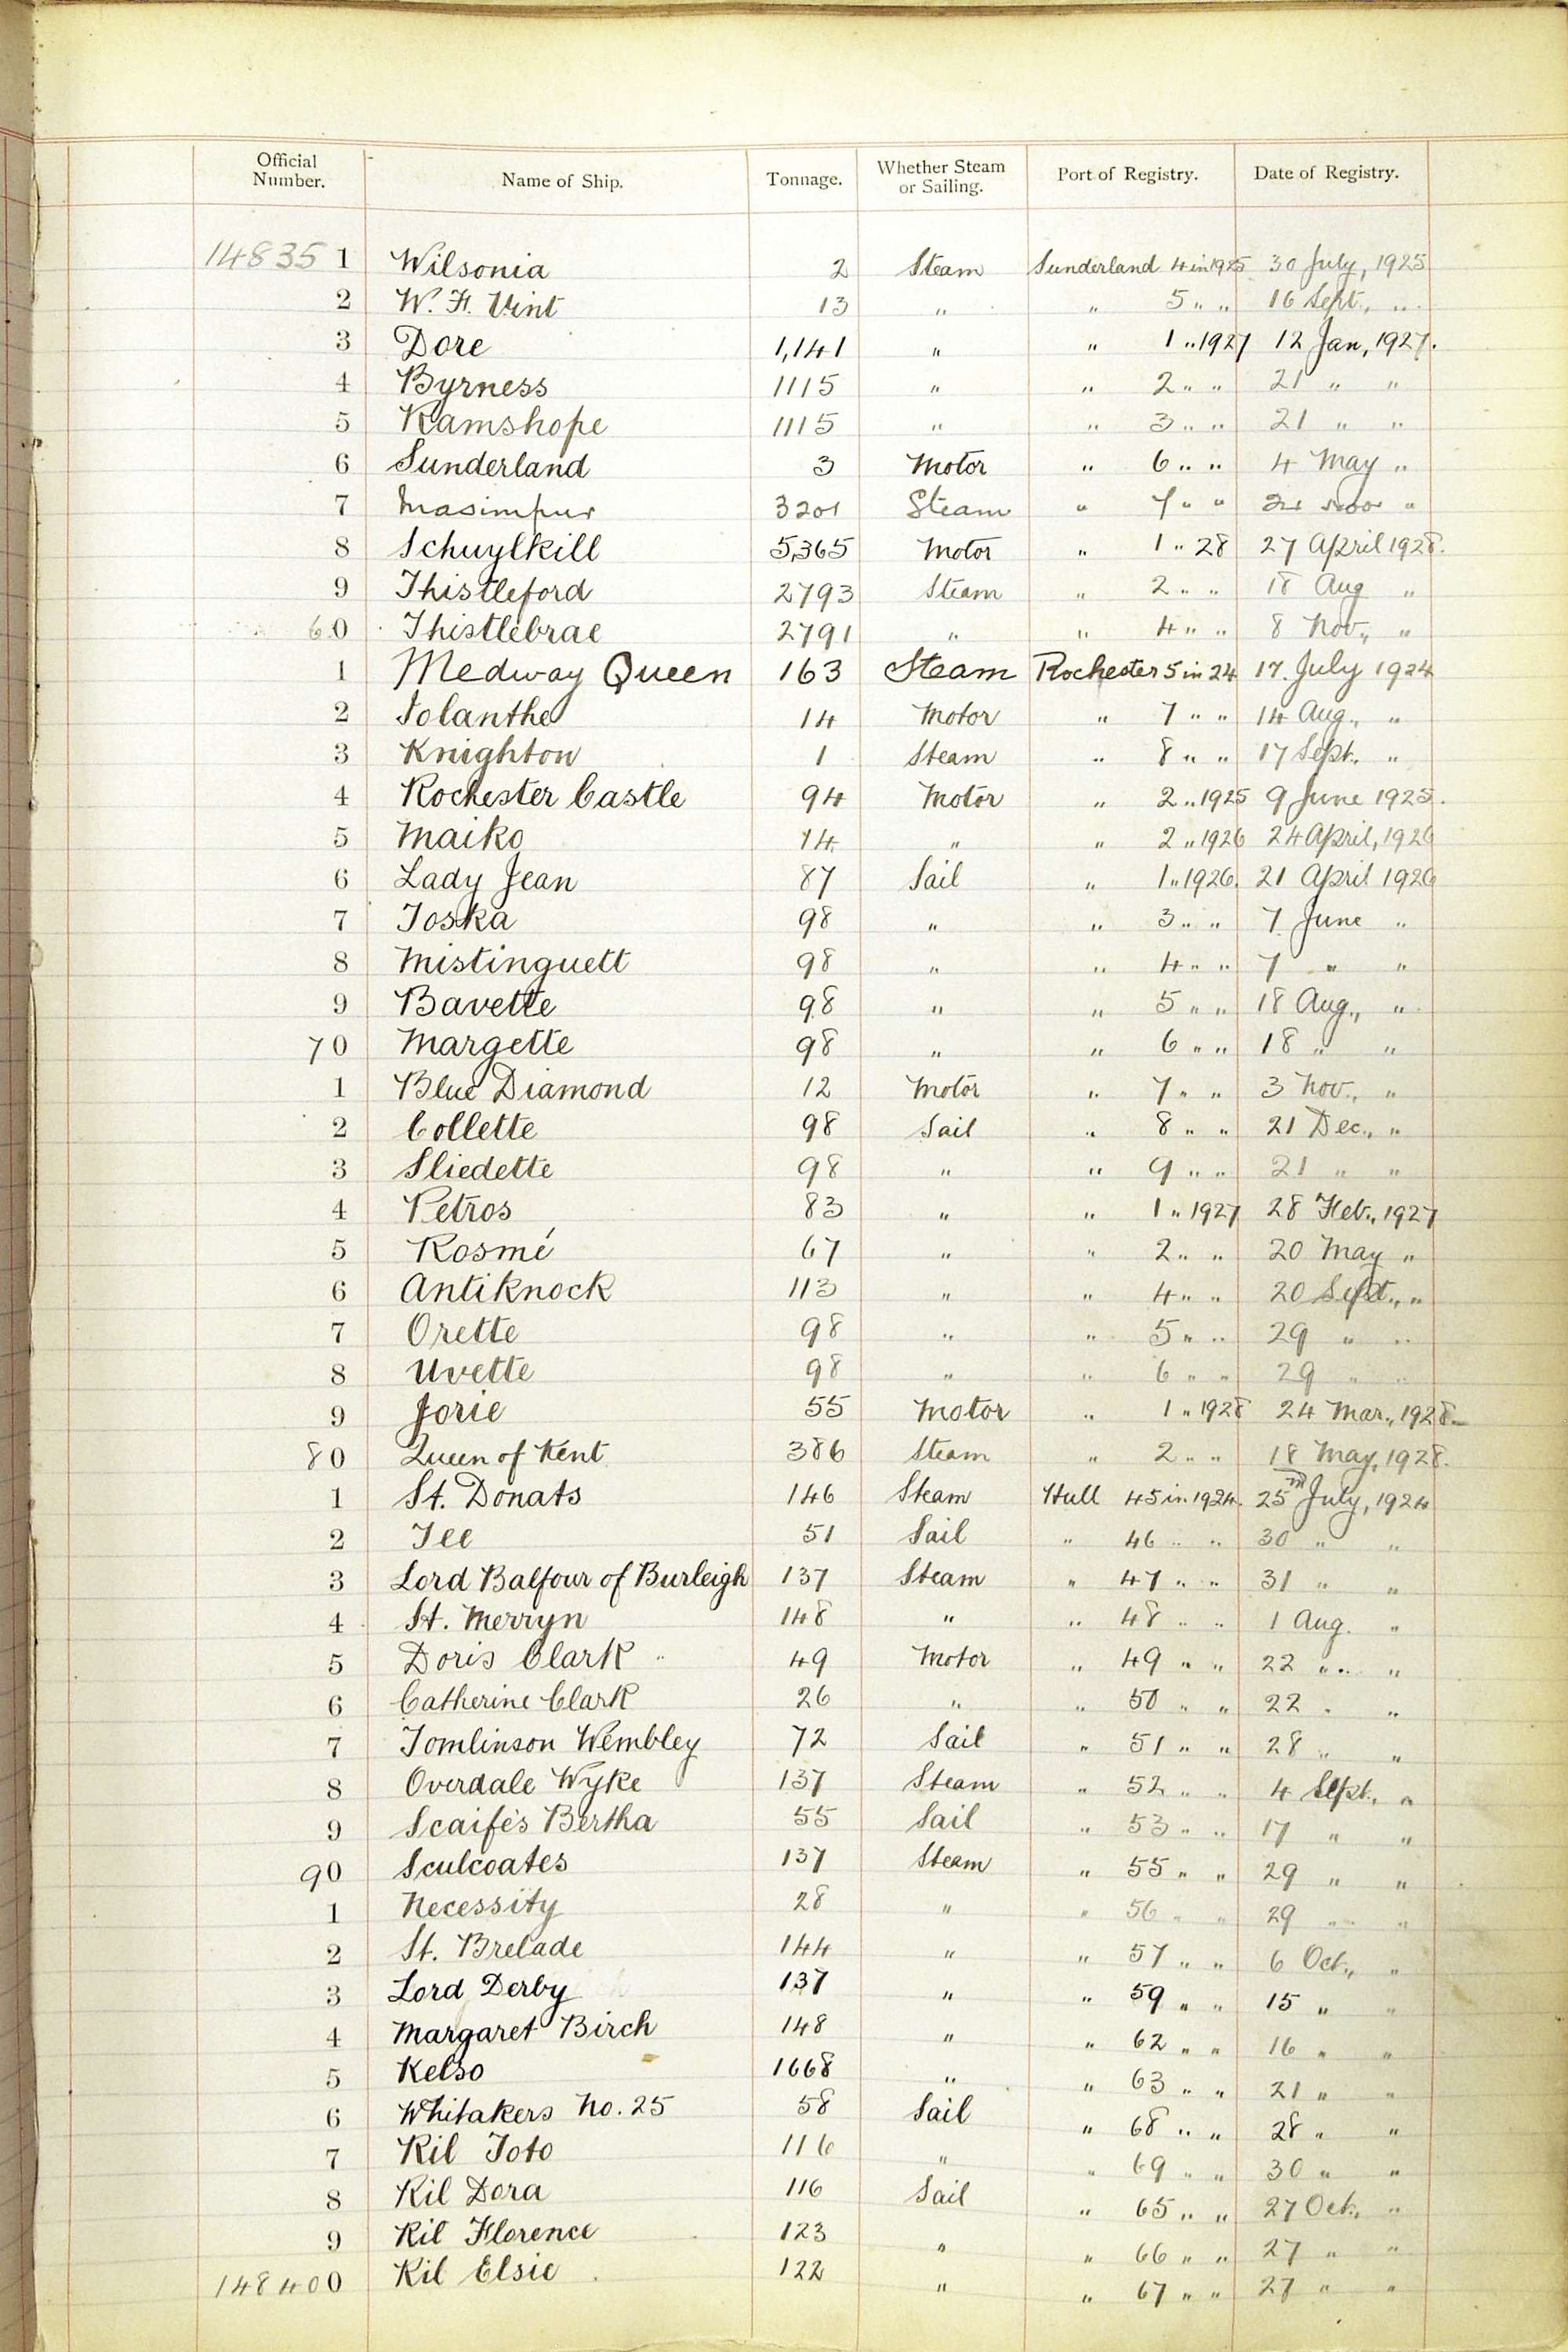 Official Number. Name of Ship. Tonnage. Whether Steam or Sailing. Port of Registry. Date of Registry.
148351 Wilsonia 2 Steam Sunderland 4 in 1925 30 July, 1925
2 W. F. Vint 13 " " 5 " " 16 Sept., "
3 Dore 1,141 " " 1 " 1927 12 Jan, 1927.
4 Byrness 1115 " " 2 " " 21 " "
5 Ramshope 1115 " " 3 " " 21 " "
6 Sunderland 3 Motor " 6 " " 4 May "
7 Masimpur 3201 Steam " 7 " " "
8 Schuylkill 5,365 Motor " 1 " 28 27 April 1928.
9 Thistleford 2793 Steam " 2 " " 18 Aug "
60 Thistlebrae 2791 " " 4 " " 8 Nov., "
1 Medway Queen 163 Steam Rochester 5 in 24 17. July 1924
2 Iolanthe 14 Motor " 7 " " 14 Aug., "
3 Knighton 1 Steam " 8 " " 17 Sept., "
4 Rochester Castle 94 Motor " 2 " 1925 9 June 1925.
5 Maiko 14 " " 2 " 1926 24 April, 1926
6 Lady Jean 87 Sail " 1 " 1926. 21 April 1926
7 Toska 98 " " 3 " " 7 June "
8 Mistinguett 98 " " 4 " " 7 " "
9 Bavette 98 " " 5 " " 18 Aug., "
70 Margette 98 " " 6 " " 18 " "
1 Blue Diamond 12 Motor " 7 " " 3 Nov., "
2 Collette 98 Sail " 8 " " 21 Dec., "
3 Sliedette 98 " " 9 " " 21 " "
4 Petros 83 " " 1 " 1927 28 Feb., 1927
5 Rosmé 67 " " 2 " " 20 May "
6 Antiknock 113 " " 4 " " 20 Sept., "
7 Orette 98 " " 5 " " 29 " "
8 Uvette 98 " " 6 " " 29 " "
9 Jorie 55 Motor " 1 " 1928 24 Mar., 1928
80 Queen of Kent 386 Steam " 2 " " 18 May, 1928.
1 St. Donats 146 Steam Hull 45 in 1924. 25th July, 1924
2 Tee 51 Sail " 46 " " 30 " "
3 Lord Balfour of Burleigh 137 Steam " 47 " " 31 " "
4 St. Merryn 148 " " 48 " " 1 Aug. "
5 Doris Clark 49 Motor " 49 " " 22 " "
6 Catherine Clark 26 " " 50 " " 22 " "
7 Tomlinson Wembley 72 Sail " 51 " " 28 " "
8 Overdale Wyke 137 Steam " 52 " " 4 Sept., "
9 Scaife's Bertha 55 Sail " 53 " " 17 " "
90 Sculcoates 137 Steam " 55 " " 29 " "
1 Necessity 28 " " 56 " " 29 " "
2 St. Brelade 144 " " 57 " " 6 Oct., "
3 Lord Derby 137 " " 59 " " 15 " "
4 Margaret Birch 148 " " 62 " " 16 " "
5 Kelso 1668 " " 63 " " 21 " "
6 Whitakers No. 25 58 Sail " 68 " " 28 " "
7 Kil Toto 116 " " 69 " " 30 " "
8 Kil Dora 116 Sail " 65 " " 27 Oct., "
9 Kil Florence 123 " " 66 " " 27 " "
148400 Kil Elsie 122 " " 67 " " 27 " "